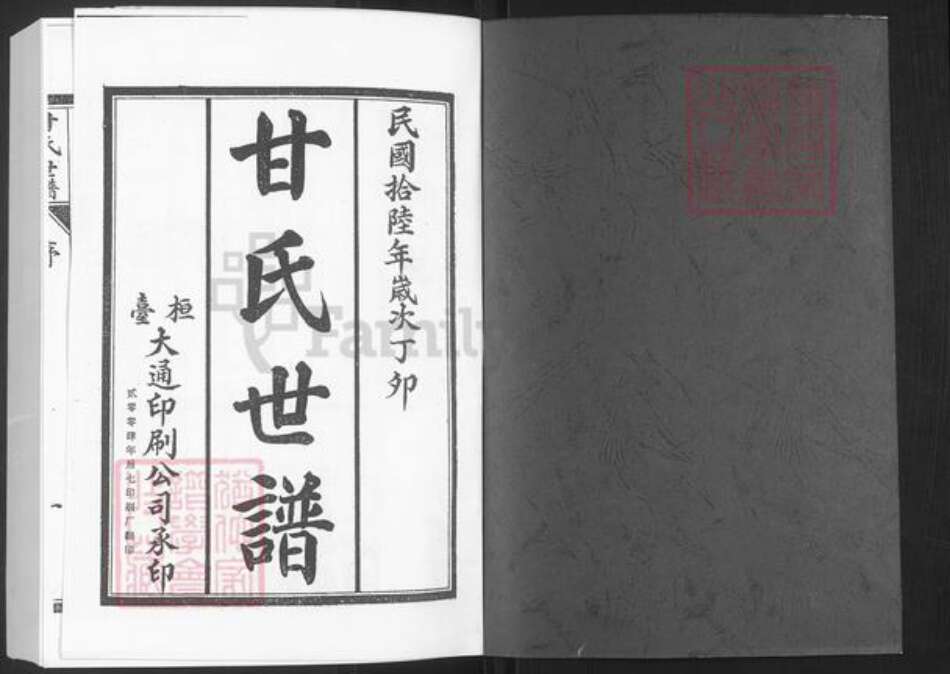 民國拾陸年歲次丁卯
甘氏世譜
桓臺
大通印刷公司承印
貳零零肆年
Family
甘氏世譜
序
一